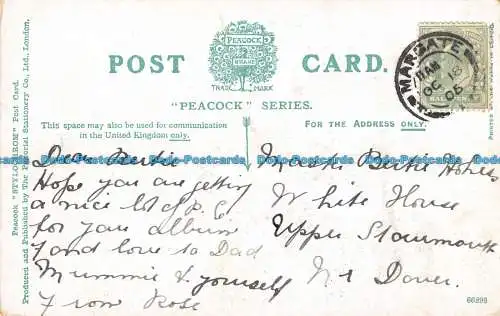 POST CARD.
PEACOCK
BRAND
TRADE MARK
"PEACOCK" SERIES.
This space may also be used for communication
in the United Kingdom only.
FOR THE ADDRESS ONLY.
Peacock "STYLOCHROM" Post Card.
Produced and Published by The Pictorial Stationery Co., Ltd., London.
MARGATE
11 AM
OC 18
05
Dear Bertie
Hope you are getting
a nice lot of P.C.
for your album
Fond love to Dad
Mummie & yourself
From Rose
Master Bertie
White House
Upper
Nr Dover.
66293
Dodo-Postcards Dodo-Postcards Dodo-Postcards Dodo-Postcards